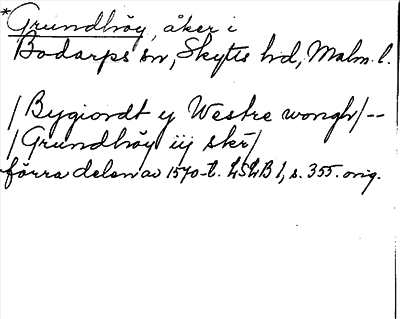 *Grundhöy, åker i
Bodarps sn, Skytts hd, Malm. l.
/Bygiordt y Westre wongh/--
/Grundhöy iij skr/
förra delen av 1570-t. LSLB 1, s. 355. orig.